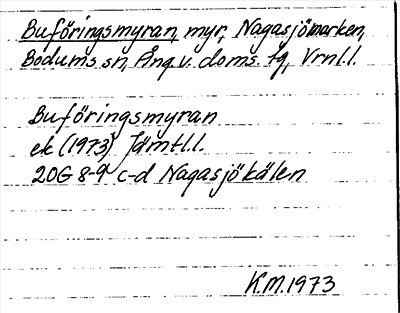 Buföringsmyran, myr, Nagasjömarken,
Bodums sn, Ång. v. doms. tg, Vrnl.l.
Buföringsmyran
ek (1973) Jämtl.l.
20G 8-9 c-d Nagasjökälen
K.M. 1973